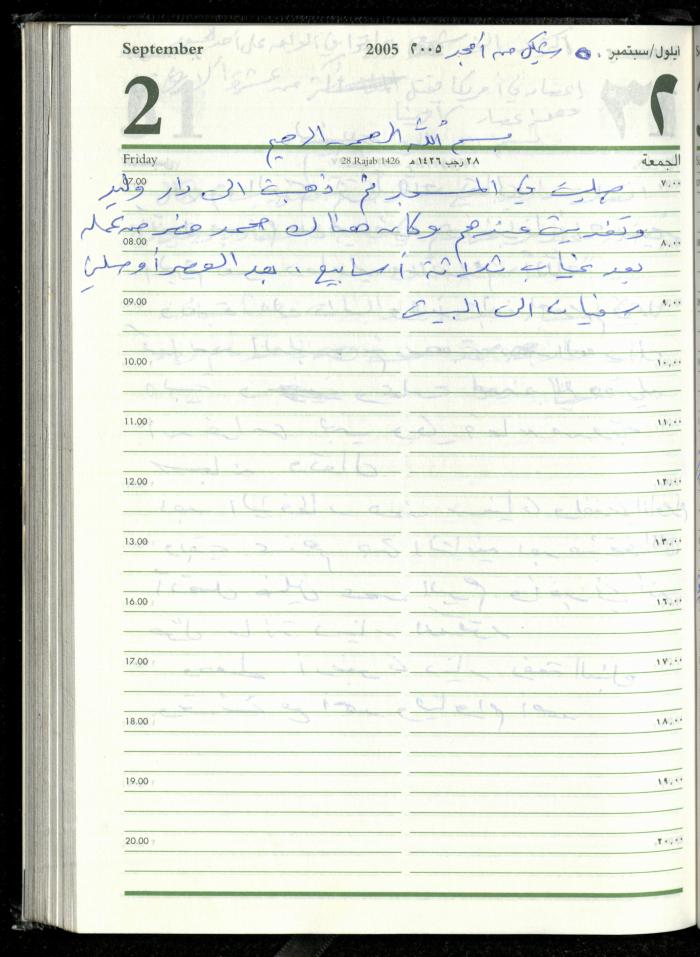 September 2005 ٢٠٠٥ شيكل من أمجد ٥٠ ايلول/سبتمبر
2 ٢
بسم الله الرحمن الرحيم
Friday 28 Rajab 1426 ٢٨ رجب ١٤٢٦ هـ الجمعة
07.00 صليت في المسجد ثم ذهبت الى دار وليد ٧,٠٠
وتغديت عندهم وكان هناك محمد حضر من عمله
08.00 ٨,٠٠
بعد غياب ثلاثة أسابيع . بعد العصر أوصلني
09.00 سفيان الى البيت ٩,٠٠
10.00 ١٠,٠٠
11.00 ١١,٠٠
12.00 ١٢,٠٠
13.00 ١٣,٠٠
16.00 ١٦,٠٠
17.00 ١٧,٠٠
18.00 ١٨,٠٠
19.00 ١٩,٠٠
20.00 ٢٠,٠٠